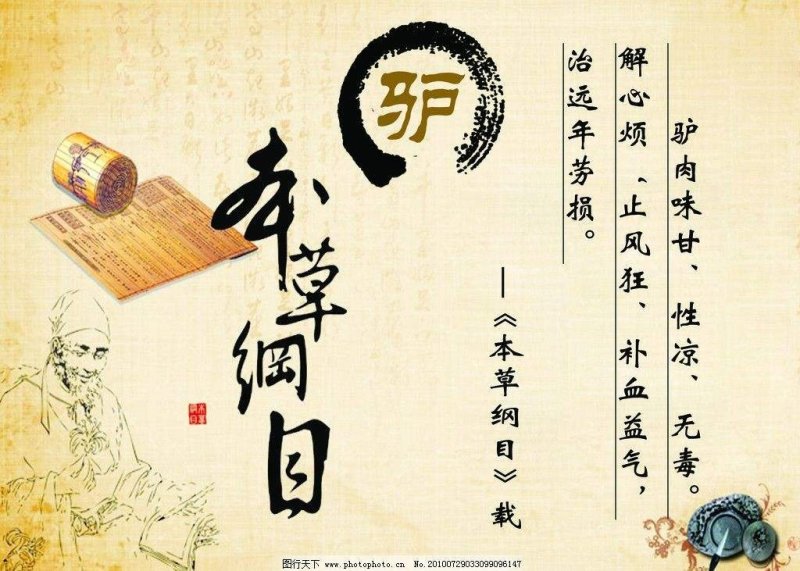 驴
驴肉味甘、性凉、无毒。
解心烦、止风狂、补血益气，
治远年劳损。
—《本草纲目》载
本草纲目
图行天下 www.photophoto.cn No.20100729033099096147